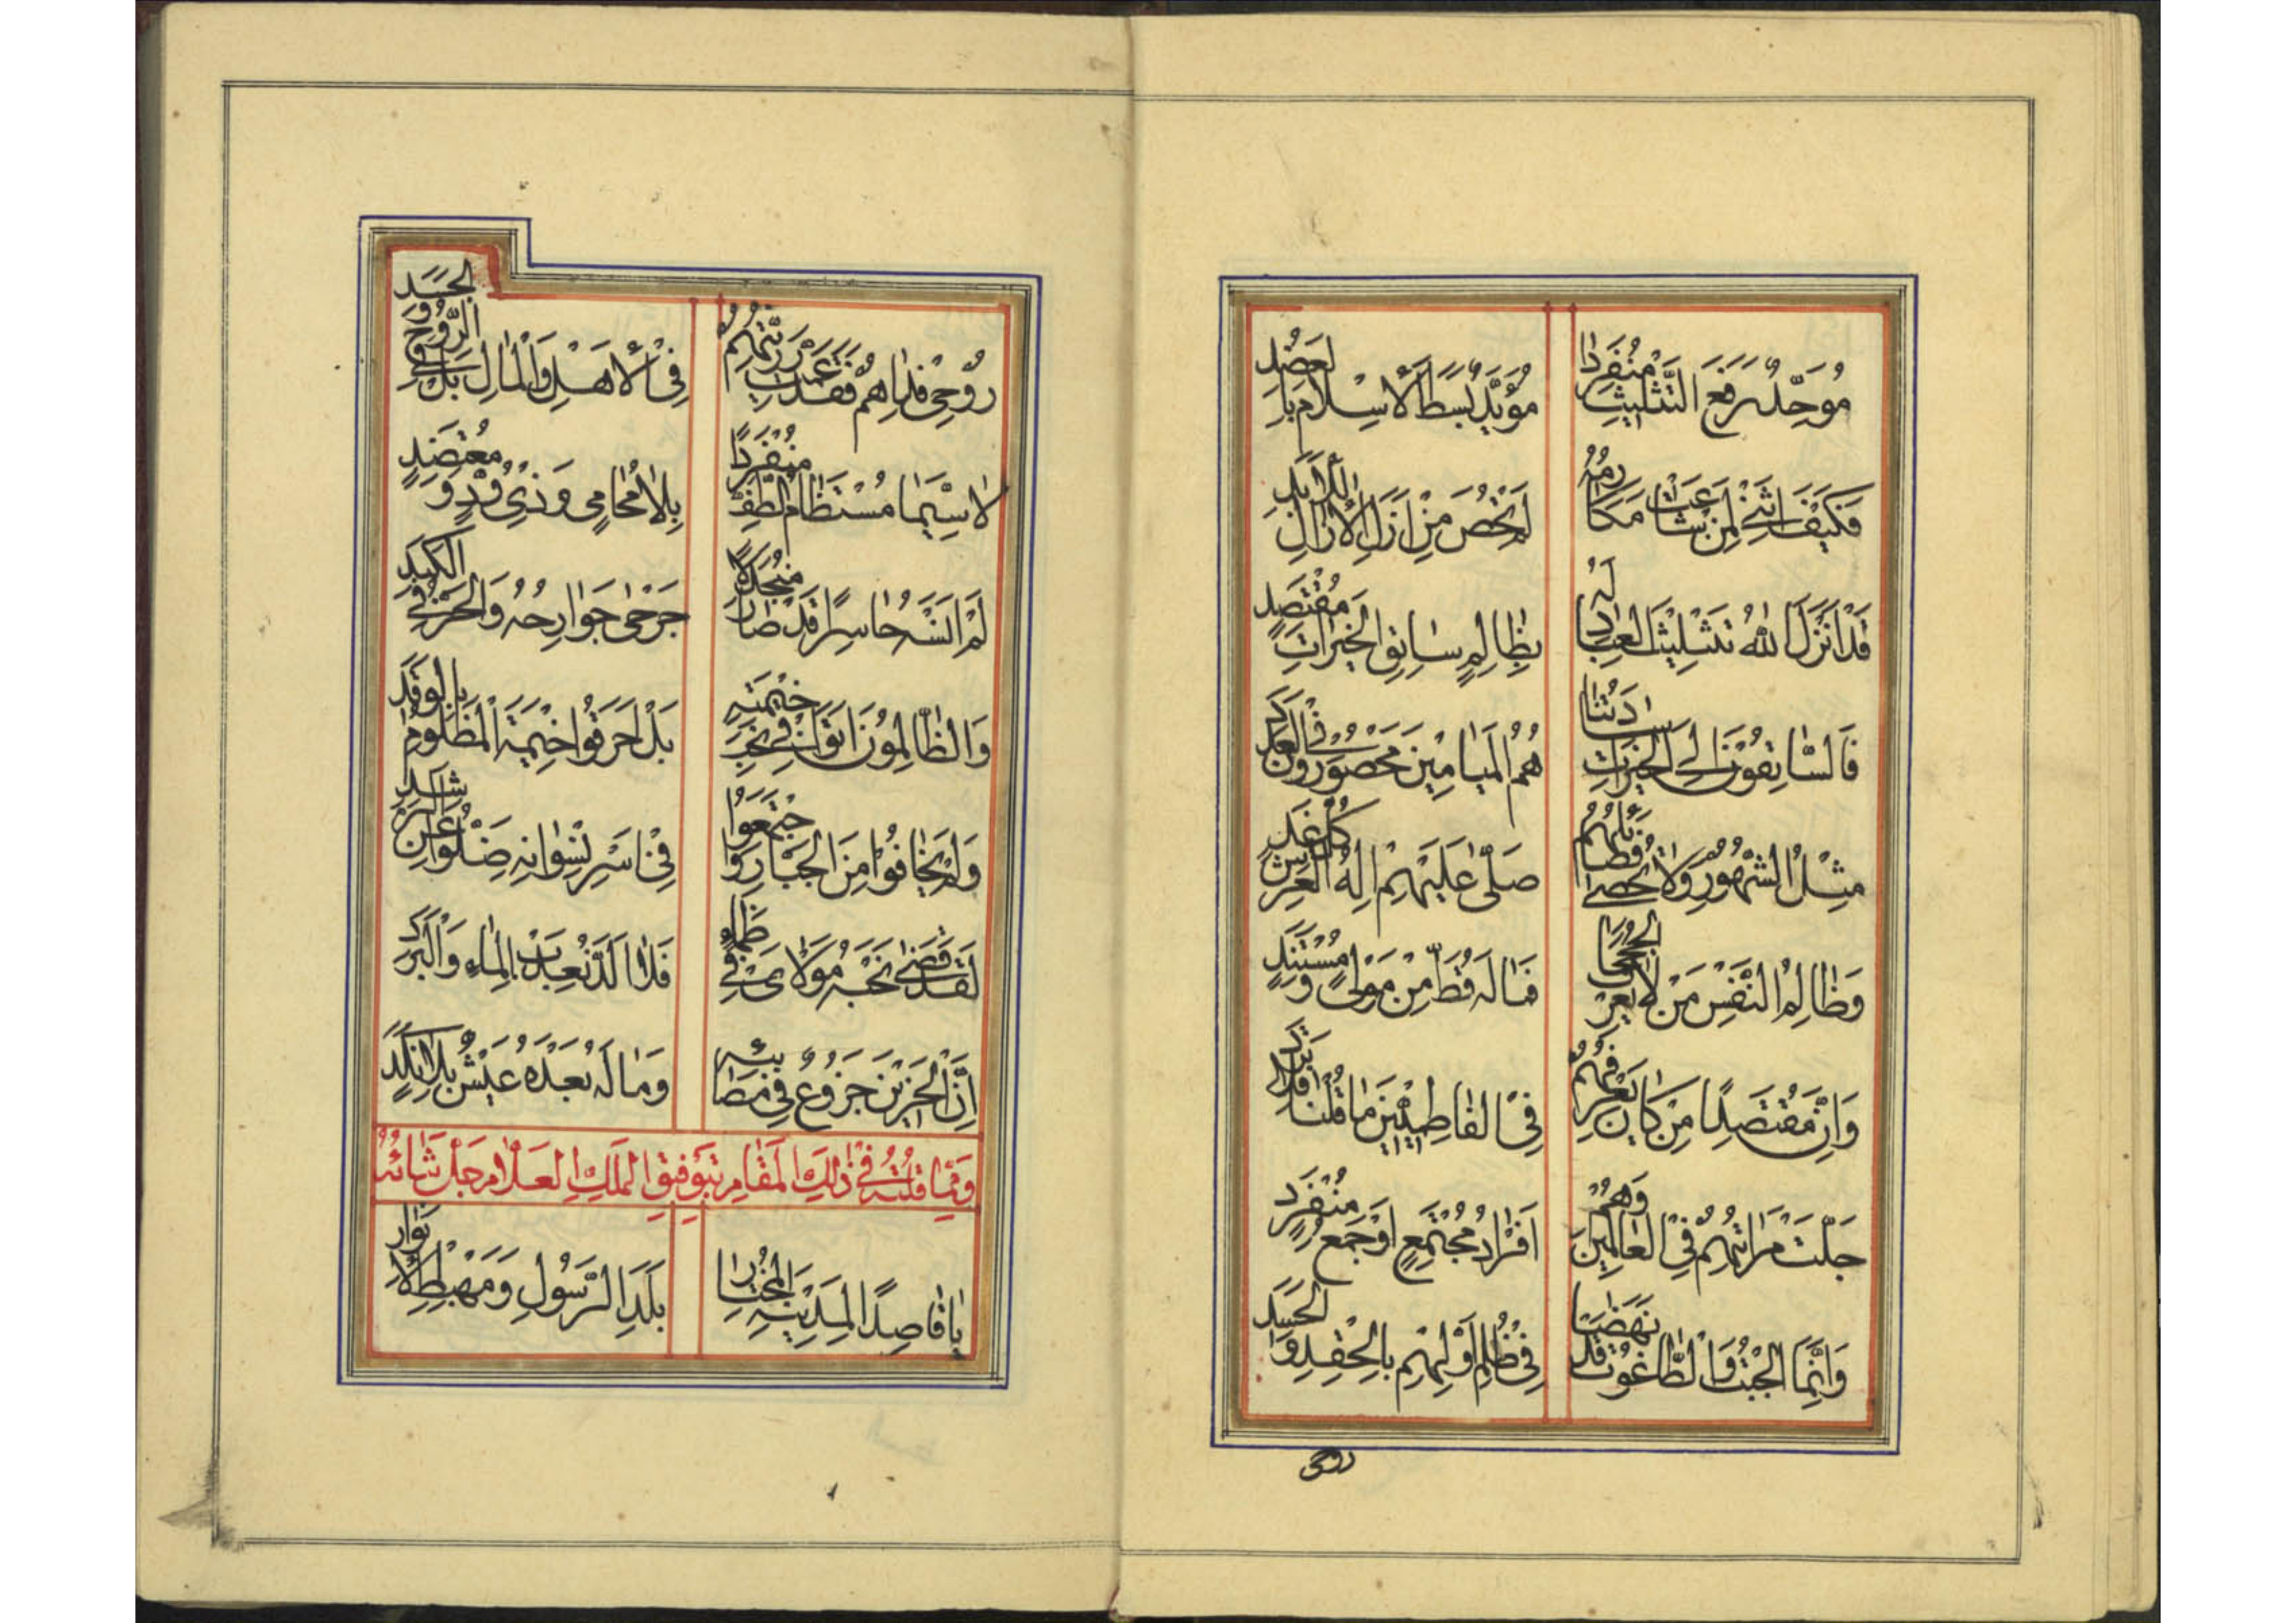 مُوَحِّدٌ رَفَعَ التَّثْلِيثَ مُنْفَرِدًا
مُؤَيَّدٌ بَسَطَ الْاِسْلَامَ بِالعَضُدِ
فَكَيْفَ اثْنَى لِمَنْ شَاعَتْ مَكَارِمُهُ
لَمْ يُحْصَ مِنْ اَزَلِ الْاٰزَالِ لِلْاَبَدِ
قَدْ اَنْزَلَ اللهُ تَثْلِيثَ العِبَادِ لَهُ
بِظَالِمٍ سَابِقِ الْخَيْرَاتِ مُقْتَصِدٍ
فَالسَّابِقُونَ اِلَى الْخَيْرَاتِ سَادَتُنَا
هُمُ الْمَيَامِيْنَ مَحْصُورُونَ فِي الْعَدَدِ
مِثْلُ الشُّهُورِ وَلَا تُحْصٰى فَضَائِلُهُمْ
صَلّٰى عَلَيْهِمْ اِلٰهُ الْعَرْشِ كُلَّ غَدٍ
وَظَالِمُ النَّفْسِ مَنْ لَا يَعْرِفُ الْحُجَجَا
فَمَا لَهُ قَطُّ مِنْ مَوْلًى وَمُسْتَنَدٍ
وَاِنَّ مُقْتَصِدًا مَنْ كَانَ يَعْرِفُهُمْ
فِى الفَاطِمِيِّيْنَ مَا قُلْنَا فَلَا تَزِدِ
جَلَّتْ مَرَاتِبُهُمْ فِي الْعَالَمِيْنَ وَهُمْ
اَفْرَادُ مُجْتَمِعٍ اَوْ جَمْعُ مُنْفَرِدٍ
وَاِنَّمَا الْجِبْتُ وَالطَّاغُوتُ قَدْ نَهَضَا
فِى ظُلْمِ اَوَّلِهِمْ بِالْحِقْدِ وَالْحَسَدِ
روحى
رُوْحِى فِدَاهُمْ فَقَدْ عَزَّتْ رَزِيَّتُهُمْ
فِى الْاَهْلِ وَالْمَالِ بَلْ فِي الرُّوْحِ وَالْجَسَدِ
لَا سِيَّمَا مُسْتَظَامُ الطَّفِّ مُنْفَرِدًا
بِلَا مُحَامِى وَذِى وُدٍّ وَمُعْتَضِدٍ
لَمْ اَنْسَهُ حَاسِرًا قَدْ صَارَ مُنْجَدِلًا
جَرْحٰى جَوَارِحُهُ وَالْحَرُّ فِي الْكَبِدِ
وَالظَّالِمُونَ اَتَوْا فِى نَحْرِ خَيْمَتِهِ
بَلْ اَحْرَقُوا خَيْمَةَ الْمَظْلُومِ بِالْوَقَدِ
وَلَمْ يَخَافُوا مِنَ الْجَبَّارِ وَاجْتَمَعُوا
فِى اَسْرِ نِسْوَانِهِ ضَلُّوا عَنِ الرَّشَدِ
لَقَدْ قَضٰى نَحْبَهُ مَوْلَاىَ فِي ظَمَاءٍ
فَلَا اَلَذَّ بِعَذْبِ الْمَاءِ وَالْبَرَدِ
اِنَّ الْحَزِيْنَ جَزُوعٌ فِى مَصَائِبِهِ
وَمَا لَهُ بَعْدَهُ عَيْشٌ بِلَا نَكَدٍ
وَمِمَّا قُلْتُهُ فِي ذٰلِكَ الْمَقَامِ بِتَوْفِيقِ الْمَلِكِ الْعَلَّامِ جَلَّ شَأْنُهُ
يَا قَاصِدًا لِمَدِيْنَةِ الْمُخْتَارِ
بَلَدِ الرَّسُولِ وَمَهْبِطِ الْاَنْوَارِ